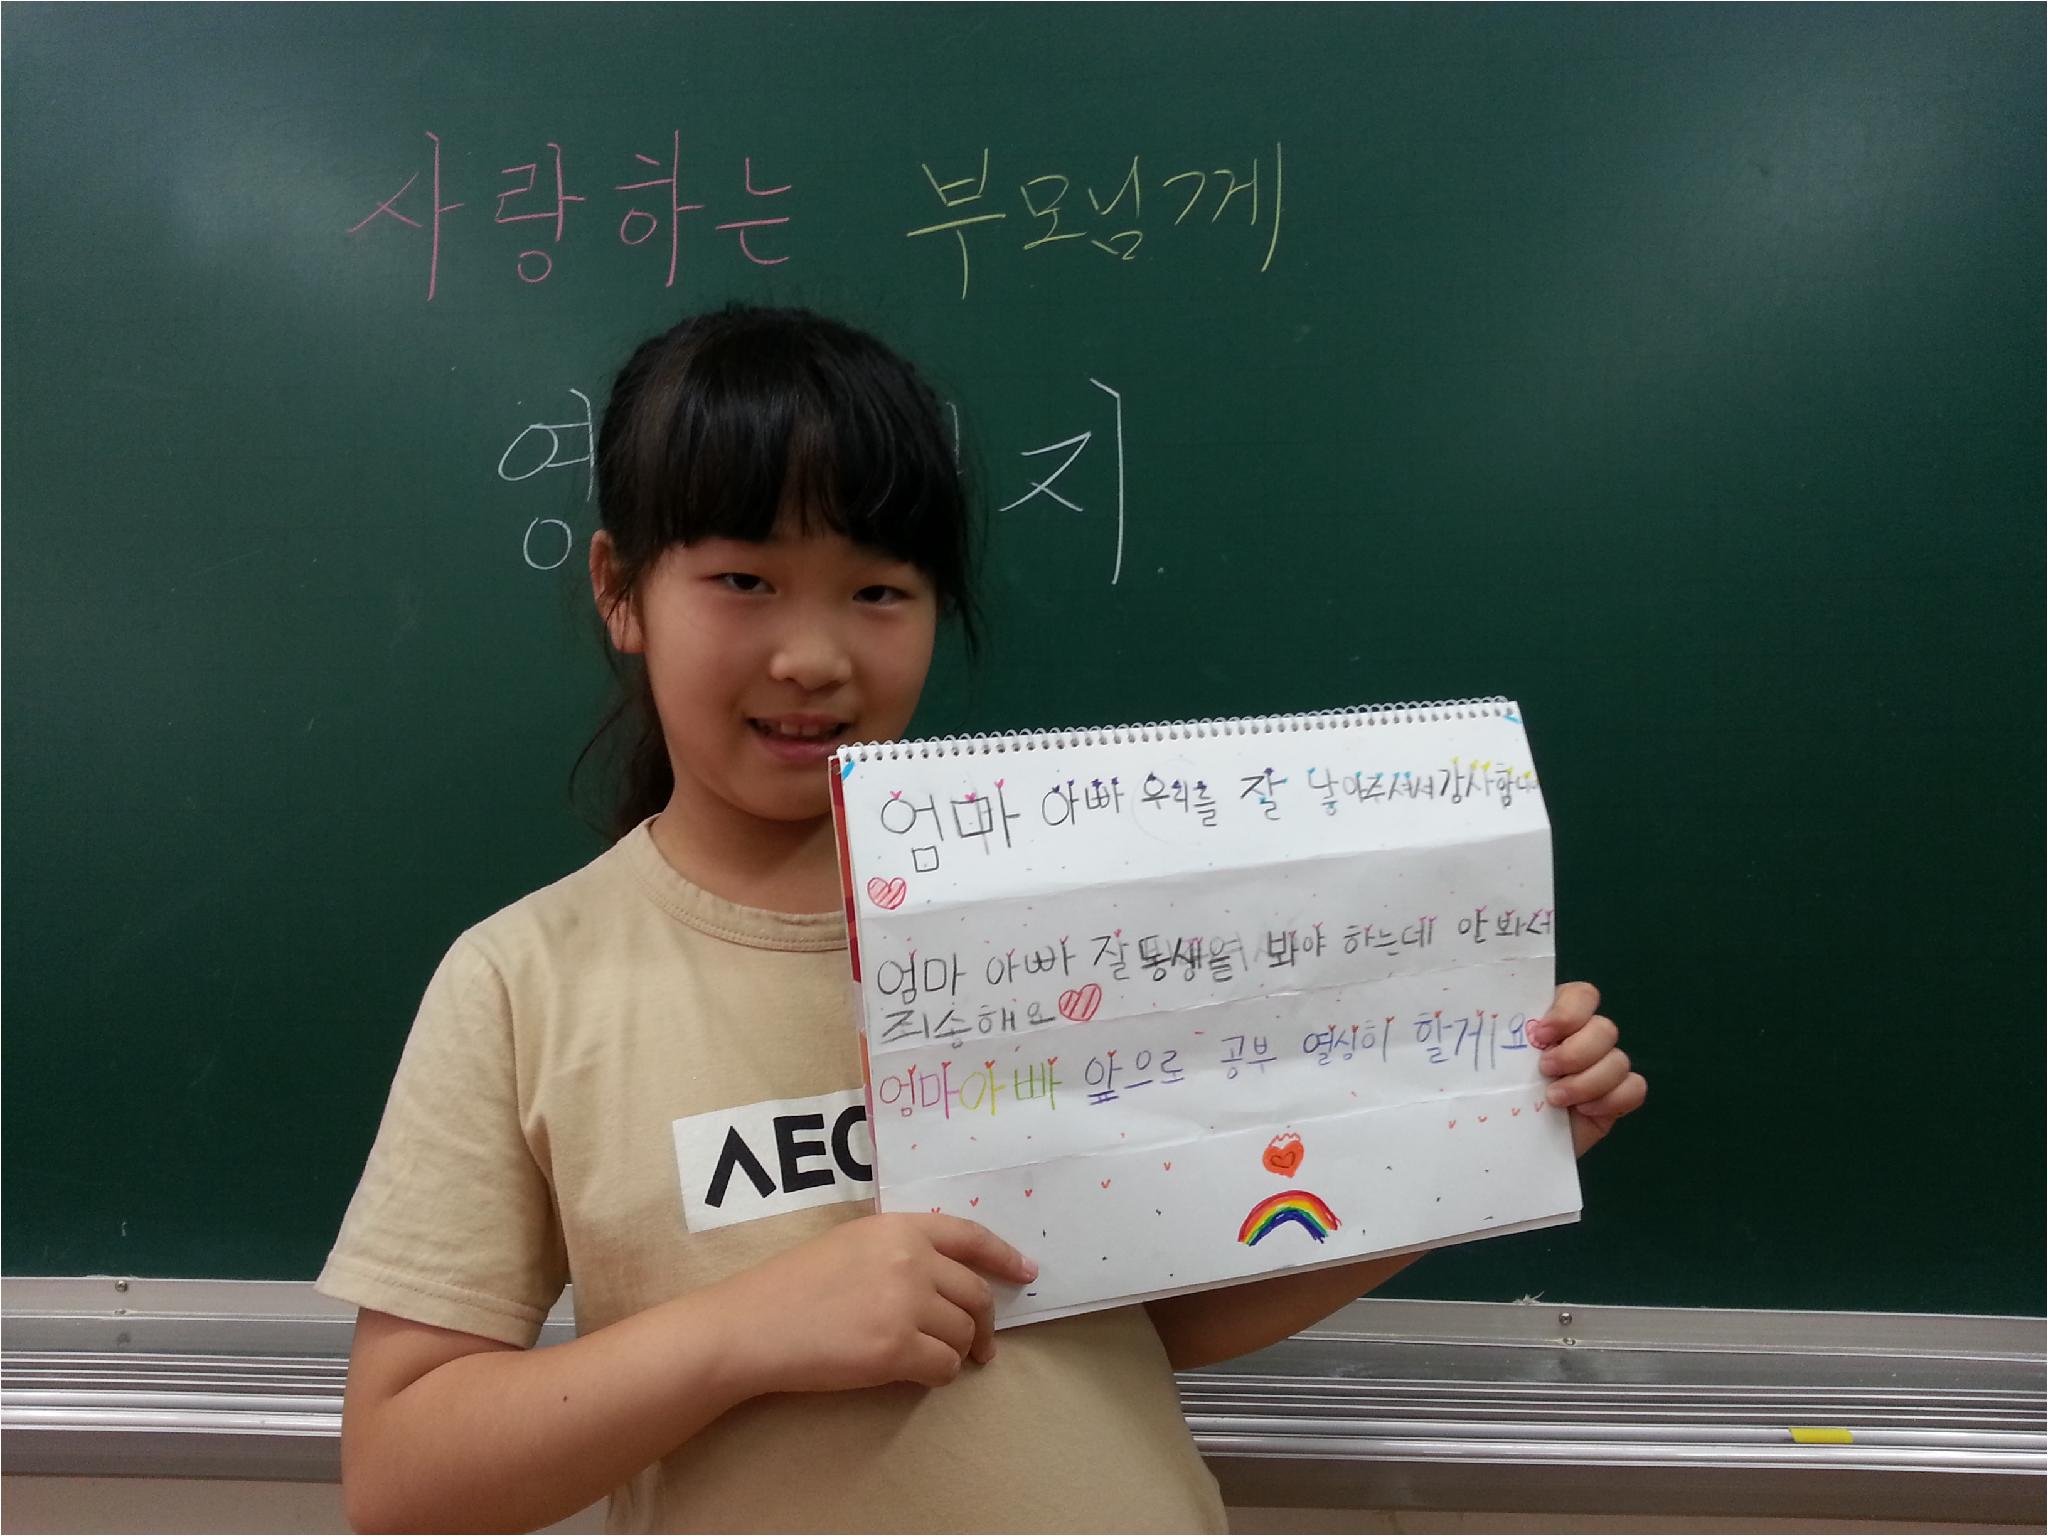 사랑하는 부모님께
영 지
엄마 아빠 우리를 잘 낳아주셔서 감사합니다
엄마 아빠 잘 동생을 봐야 하는데 안 봐서
죄송해요
엄마 아빠 앞으로 공부 열심히 할게요
AEC